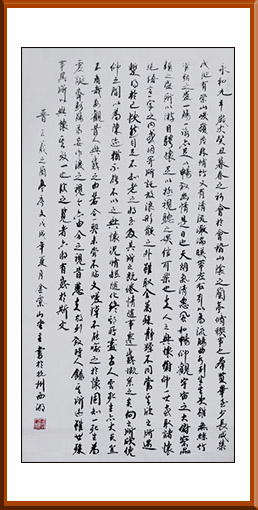 永和九年歲在癸丑暮春之初會于會稽山陰之蘭亭脩稧事也羣賢畢至少長咸集
此地有崇山峻領茂林脩竹又有清流激湍暎帶左右引以為流觴曲水列坐其次雖無絲竹
管弦之盛一觴一詠亦足以暢敘幽情是日也天朗氣清惠風和暢仰觀宇宙之大俯察品
類之盛所以遊目騁懷足以極視聽之娛信可樂也夫人之相與俯仰一世或取諸懷
抱悟言一室之內或因寄所託放浪形骸之外雖趣舍萬殊靜躁不同當其欣於所遇
暫得於己怏然自足不知老之將至及其所之既惓情隨事遷感慨係之矣向之所欣俛
仰之間以為陳迹猶不能不以之興懷況脩短隨化終期於盡古人云死生亦大矣豈
不痛哉每攬昔人興感之由若合一契未嘗不臨文嗟悼不能喻之於懷固知一死生為
虛誕齊彭殤為妄作後之視今亦由今之視昔悲夫故列敘時人錄其所述雖世殊
事異所以興懷其致一也後之覽者亦將有感於斯文
晉王羲之蘭亭序文戊戌年夏月金山堂主書於杭州西湖